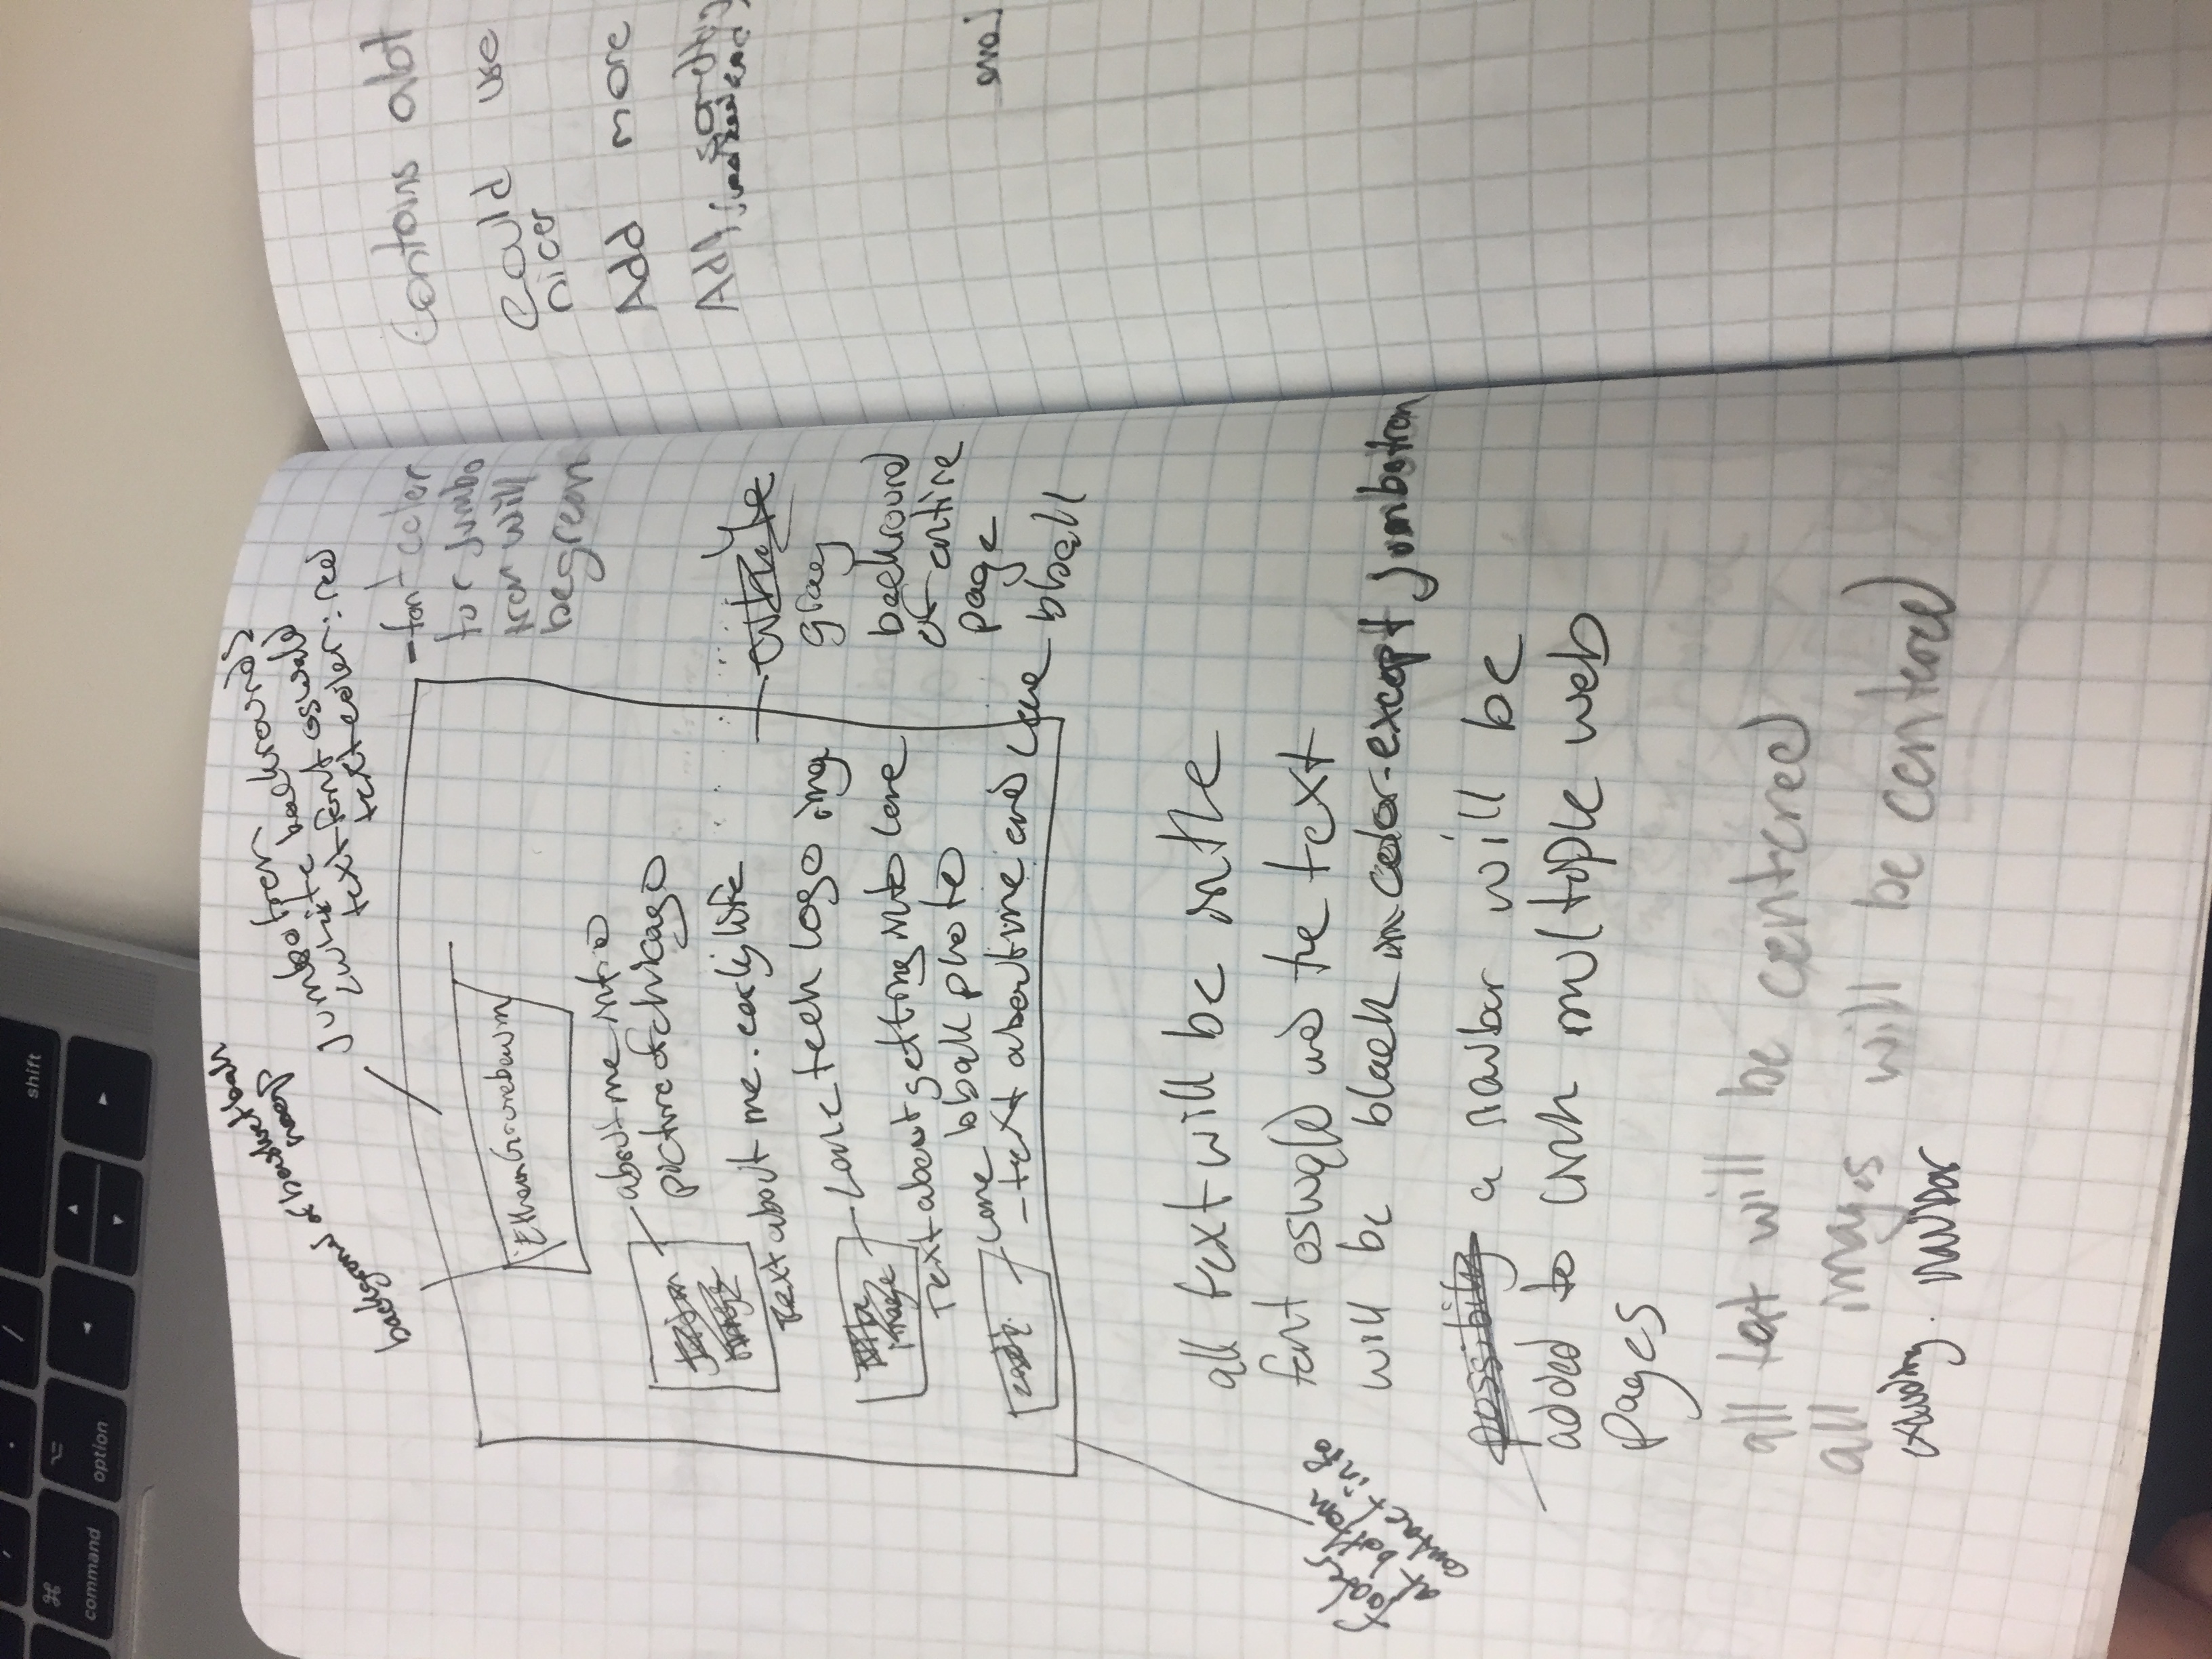 shift
command
option
background of basketball
hoop
Jumbotron
white backrounds
text font oswald
text color: red
- font color
for Jumbo
tron will
be green
Ethan Grunebaum
about me intro
picture of chicago
Jordan
image
Text about me. early life
Lane tech logo img
image
Text about getting into Lane
Lane bball photo
- text about me and Lane
bball
white
gray
backround
of entire
page
footer
at bottom
contact info
all text will be in the
font oswald and the text
will be black in color - except Jumbotron
possibily a navbar will be
added to link multiple web
pages
all text will be centered
all images will be centered
excluding navbar
Contains abt
Could use
nicer
Add more
Add
Lane